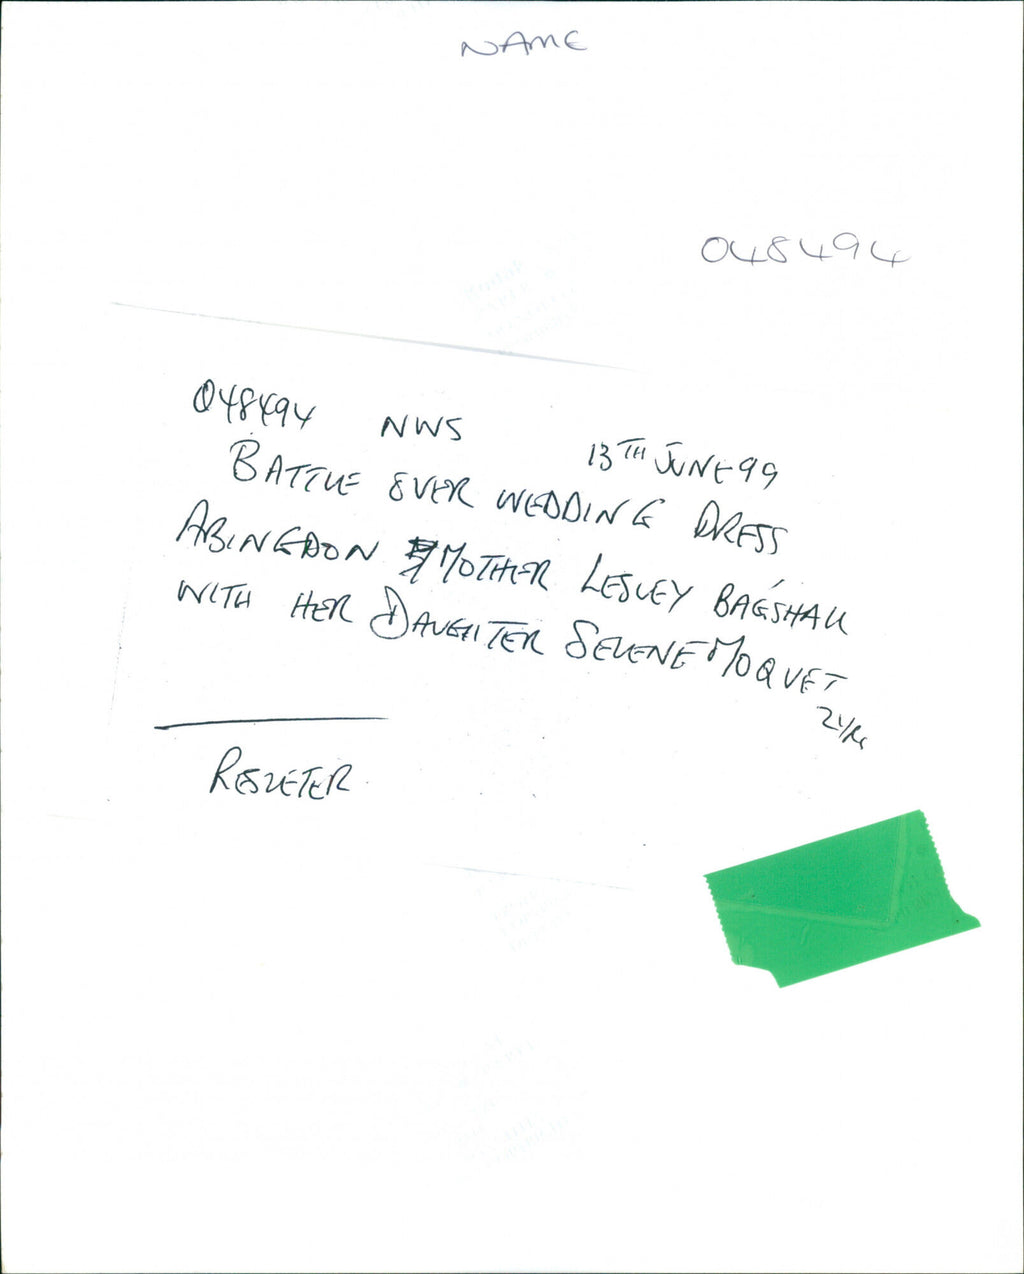 NAME
048494
048494 NWS 13TH JUNE 99
BATTLE OVER WEDDING DRESS
ABINGDON MOTHER LESLEY BAGSHALL
WITH HER DAUGHTER SELENE MOQUET